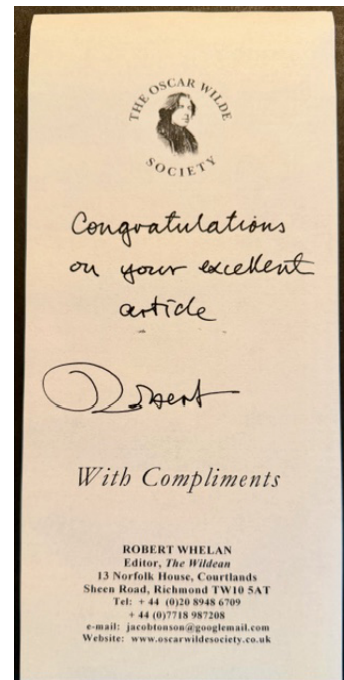 THE OSCAR WILDE
SOCIETY
Congratulations
on your excellent
article
Robert
With Compliments
ROBERT WHELAN
Editor, The Wildean
13 Norfolk House, Courtlands
Sheen Road, Richmond TW10 5AT
Tel: + 44 (0)20 8948 6709
+ 44 (0)7718 987208
e-mail: jacobtonson@googlemail.com
Website: www.oscarwildesociety.co.uk